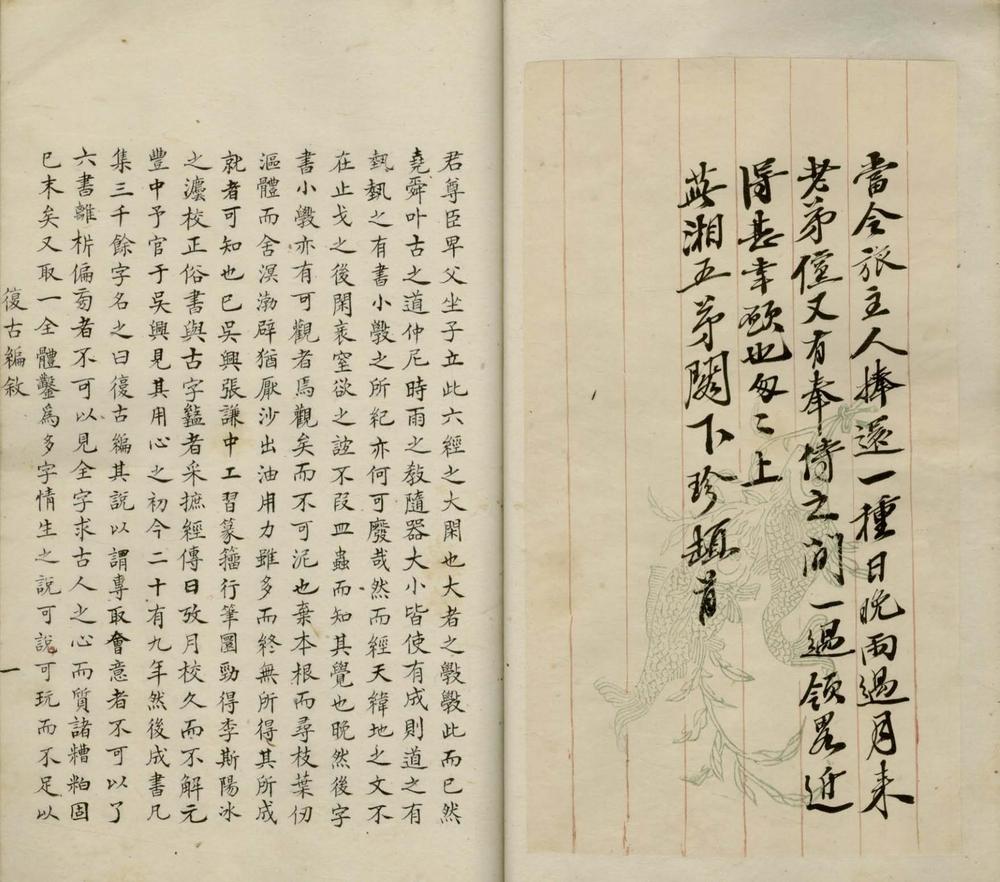 當令旅主人捧還一種日晚雨過月來
老弟僮又有奉倩之間一過領畧近
得甚幸欲也匆〻上
湘五弟閣下珍頓首
君尊臣卑父坐子立此六經之大閑也大者之斆斆此而已然
堯舜叶古之道仲尼時雨之教隨器大小皆使有成則道之有
埶埶之有書小斆之所紀亦何可廢哉然而經天緯地之文不
在止戈之後閑衺窒欲之誼不叚皿蟲而知其覺也晚然後字
書小斆亦有可觀者焉觀矣而不可泥也棄本根而尋枝葉仞
漚體而舍溟渤辟猶厭沙出油用力雖多而終無所得其所成
就者可知也已吳興張謙中工習篆籀行筆圜勁得李斯陽冰
之灋校正俗書與古字盭者采摭經傳日攷月校久而不解元
豐中予官于吳興見其用心之初今二十有九年然後成書凡
集三千餘字名之曰復古編其說以謂專取會意者不可以了
六書離析偏㫄者不可以見全字求古人之心而質諸糟粕固
已末矣又取一全體鑿爲多字情生之說可說可玩而不足以
復古編敘
一